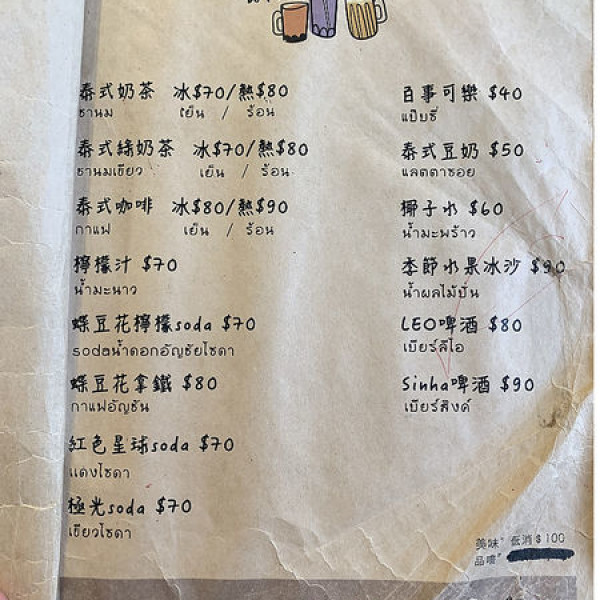 泰式奶茶 冰$70/熱$80
ชานม เย็น / ร้อน
泰式綠奶茶 冰$70/熱$80
ชานมเขียว เย็น / ร้อน
泰式咖啡 冰$80/熱$90
กาแฟ เย็น / ร้อน
檸檬汁 $70
น้ำมะนาว
蝶豆花檸檬soda $70
sodaน้ำดอกอัญชัยโซดา
蝶豆花拿鐵 $80
กาแฟอัญชัน
紅色星球soda $70
แดงโซดา
極光soda $70
เขียวโซดา
百事可樂 $40
แป๊บซี่
泰式豆奶 $50
แลตตาซอย
椰子水 $60
น้ำมะพร้าว
季節水果冰沙 $90
น้ำผลไม้ปั่น
LEO啤酒 $80
เบียร์ลีโอ
Sinha啤酒 $90
เบียร์สิงค์
美味" 低消$100
品嚐"